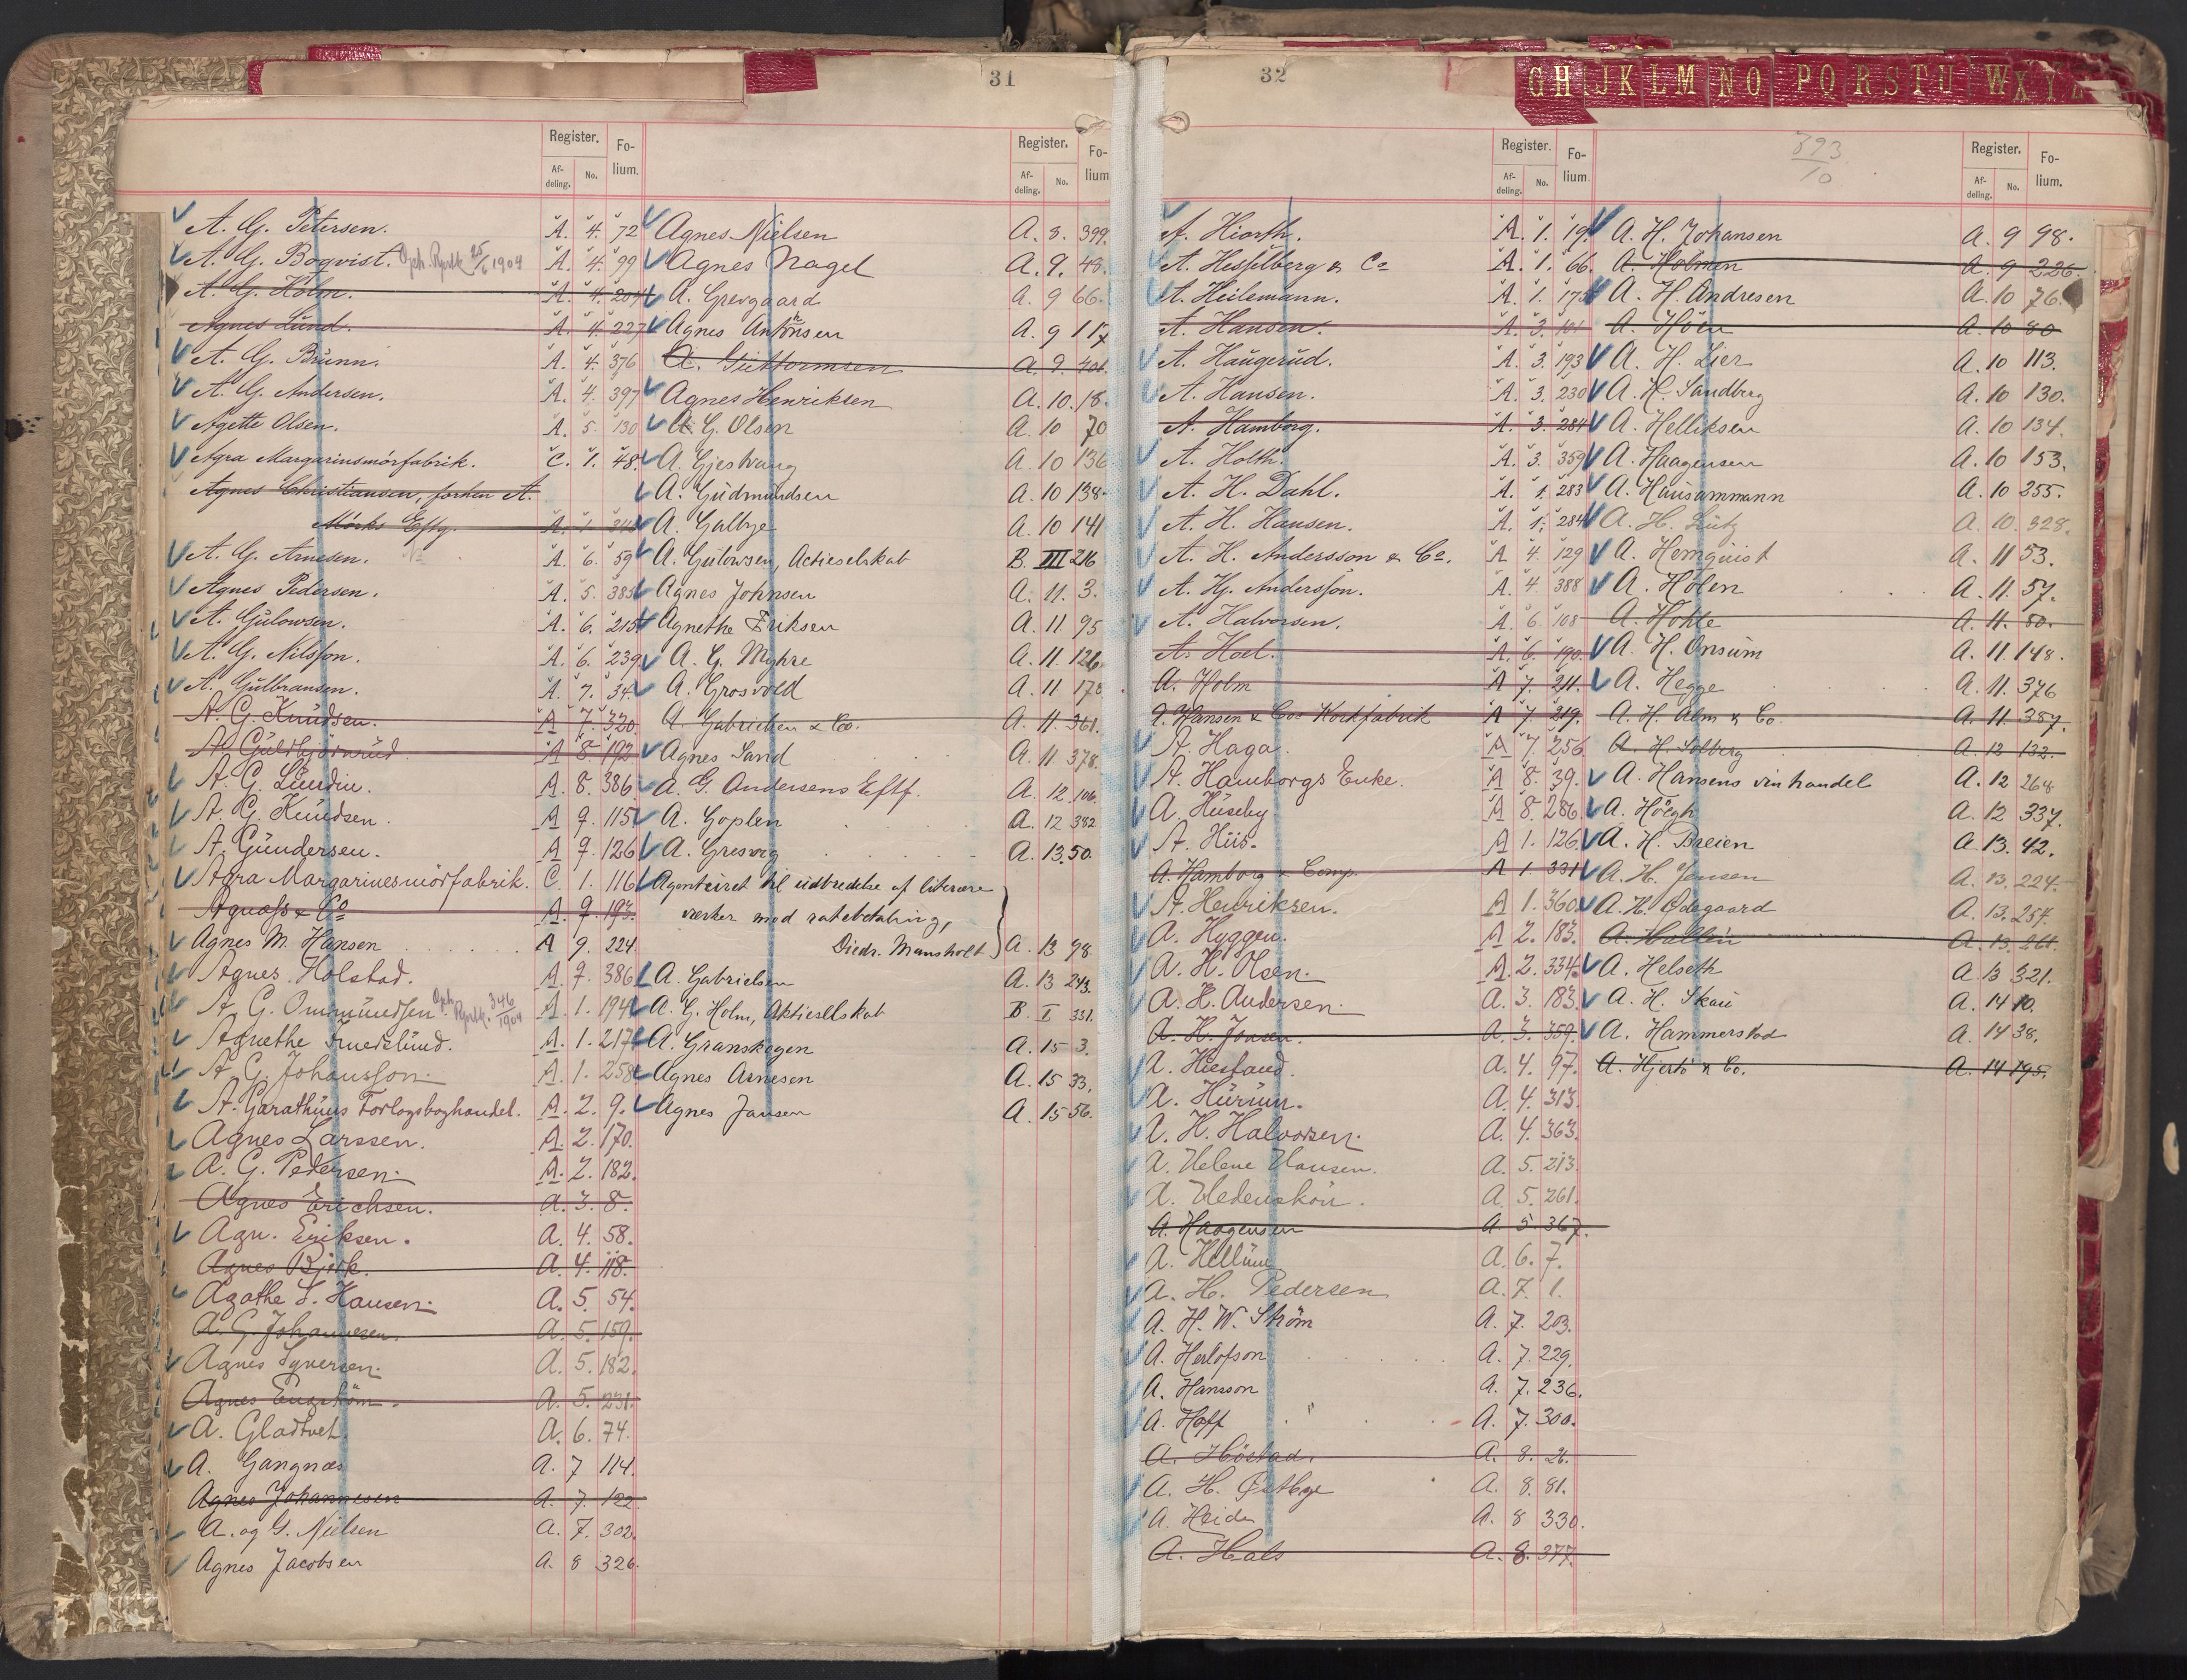 31
Register.
Fo-
lium.
Af-
deling.
No.
A. G. Petersen. A. 4. 72
A. G. Boqvist. 1904 A. 4. 99
A. G. Holm. A. 4. 204
Agnes Lund. A. 4. 227
A. G. Brunn. A. 4. 376
A. G. Andersen. A. 4. 397
Agette Olsen. A. 5. 130
Agra Margarinsmörfabrik. C. 1. 48.
Agnes Christiansen, forhen A.
Mørks Eftg. A. 1
A. G. Arnesen. A. 6. 59
Agnes Pedersen. A. 5. 385
A. Gulowsen. A. 6. 215
A. G. Nilsson. A. 6. 239
A. Gulbransen. A. 7. 34
A. G. Knudsen. A 7. 320.
A. Guldbjørnrud A 8. 192
A. G. Lundin. A. 8. 386.
A. G. Knudsen. A 9. 115
A. Gundersen. A 9. 126
Agra Margarinesmörfabrik. C. 1. 116
Agnass & Co A. 9. 193.
Agnes M. Hansen A 9. 224
Agnes Holstad. A. 9. 386
A. G. Ommundsen. 346 1904 A. 1. 194
Agnethe Fuerslund. A. 1. 217
A. G. Johansson A. 1. 258
A. Garathuns Forlagsboghandel. A. 2. 9.
Agnes Larssen. A. 2. 170.
A. G. Pedersen. A. 2. 182.
Agnes Erichsen. A. 3. 8.
Agn. Eriksen. A. 4. 58.
Agnes Bjørk. A. 4. 118.
Agathe S. Hansen. A. 5. 54.
A. G. Johannesen. A. 5. 159.
Agnes Syversen. A. 5. 182.
Agnes Engström. A. 5. 231.
A. Gladtvet. A. 6. 74.
A. Gangnæs A. 7 114.
Agnes Johannesen A. 7. 122
A. og G. Nielsen A. 7. 302.
Agnes Jacobsen A. 8 326.
Register.
Fo-
lium
Af-
deling.
No.
Agnes Nielsen A. 8. 399.
Agnes Nagel A. 9. 48.
A. Grevgaard A. 9 66.
Agnes Antonsen A. 9 117
A. Guttormsen A. 9. 401.
Agnes Henriksen A. 10. 18.
A. G. Olsen A. 10 70
A. Gjestvang A. 10 136
A. Gudmundsen A. 10 138.
A. Galbye A. 10 141
A. Gulowsen, Actieselskab B. III 216
Agnes Johnsen A. 11. 3.
Agnethe Eriksen A. 11 95
A. G. Myhre A. 11. 126.
A. Grosvold A. 11 178
A. Gabrielsen & Co. A. 11. 361.
Agnes Sand A. 11 378.
A. G. Andersens Eftf. A. 12. 106.
A. Goplen A. 12 382
A. Gresvig A. 13. 50.
Agenturet til udbredelse af literære
værker mod ratebetaling,
Diedr. Mansholt A. 13 98.
A. Gabrielsen A. 13 243.
A. G. Holm, Aktieselskab B. I 331.
A. Granskogen A. 15 3.
Agnes Arnesen A. 15 33.
Agnes Jansen A. 15 56.
32
Register.
Fo-
lium.
Af-
deling.
No.
A. Hiorth. A. 1. 19.
A. Hesselberg & Co A. 1. 66.
A. Heilemann. A. 1. 175
A. Hansen. A. 3. 101
A. Haugerud. A. 3. 193
A. Hansen. A. 3. 230
A. Hamborg. A. 3. 284
A. Holth. A. 3. 359
A. H. Dahl. A. 1. 283
A. H. Hansen. A. 1. 284
A. H. Andersson & Co. A 4. 129
A. Hj. Andersson. A. 4 388
A. Halvorsen. A. 6 108
A. Hoel. A. 6. 190.
A. Holm A 7. 211.
A. Hansen & Cos Korkfabrik A 7. 219.
A. Haga A 7. 256
A. Hamborgs Enke. A 8. 39.
A. Huseby A 8. 286.
A. Hüs. A 1. 126.
A. Hamborg & Comp. A 1 331
A. Henriksen. A 1. 360.
A. Hyggen. A 2. 183.
A. H. Olsen. A. 2. 334.
A. H. Andersen. A. 3. 183.
A. H. Jonsen. A. 3. 359.
A. Hiesfand. A. 4. 97.
A. Hurum. A. 4. 313.
A. H. Halvorsen. A. 4. 363.
A. Helene Hansen. A. 5. 213.
A. Hedenskou. A. 5. 261.
A. Haagensen A. 5. 367.
A. Hellum A. 6. 7.
A. H. Pedersen A. 7. 1.
A. H. W. Strøm A. 7. 203.
A. Herlofson A. 7. 229.
A. Hansson A. 7. 236.
A. Hoff A. 7. 300.
A. Höstad. A. 8. 26.
A. H. Østbye A. 8. 81.
A. Heide A. 8 330.
A. Hals A. 8. 377.
893
10
Register.
Fo-
lium.
Af-
deling.
No.
A. H. Johansen A. 9 98.
A. Holmen A. 9 226.
A. H. Andresen A. 10 76.
A. Höeu A. 10 80
A. H. Lier A. 10 113.
A. H. Sandberg A. 10 130.
A. Helliksen A. 10 134.
A. Haagensen A. 10 153.
A. Hausammann A. 10 255.
A. H. Lütz A. 10. 328.
A. Hemquist A. 11 53.
A. Holen A. 11. 57.
A. Hohle A. 11. 80.
A. H. Onsum A. 11. 148.
A. Hegge A. 11. 376
A. H. Alm & Co. A. 11. 387.
A. H. Solberg A. 12 132.
A. Hansens vinhandel A. 12 264
A. Höegh A. 12 337.
A. H. Breien A. 13. 42.
A. H. Jensen A. 13. 224.
A. H. Ødegaard A. 13. 257.
A. Hallin A. 13. 261.
A. Helseth A. 13 321.
A. H. Skau A. 14 10.
A. Hammerstad A. 14 38.
A. Hjertö & Co. A. 14 195.
GH IJ KL M NO PQ R S T U W X Y Z